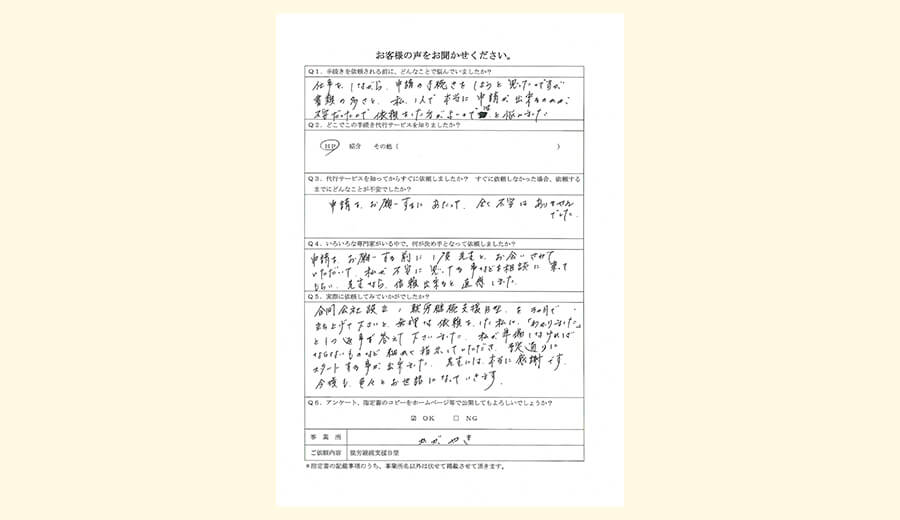 お客様の声をお聞かせください。
Q1. 手続きを依頼される前に、どんなことで悩んでいましたか？
仕事をしながら、申請の手続きをしようと思ったのですが
書類の多さと、私1人で本当に申請が出来るのか
不安だったので依頼をした方がよいのでは と悩みました
Q2. どこでこの手続き代行サービスを知りましたか？
HP 紹介 その他（ ）
Q3. 代行サービスを知ってからすぐに依頼しましたか？ すぐに依頼しなかった場合、依頼する
までにどんなことが不安でしたか？
申請を、お願いするに あたって、全く不安は ありません
でした。
Q4. いろいろな専門家がいる中で、何が決め手となって依頼しましたか？
申請を、お願いする前に 1度 先生と、お会いさせて
いただいて、私が不安に思してる事などを相談に乗って
もらい、先生なら、依頼出来ると直感しました。
Q5. 実際に依頼してみていかがでしたか？
合同会社設立、就労継続支援B型、を ヶ月で
立ち上げて下さいと、無理な依頼をした私に、「わかりました」
と 返事を答えて下さいました。私が準備しなければ
ならないものなど 細めて指示していただき、予定通りに
スタートする事が出来ました。先生には、本当に感謝です。
今後も、色々とお世話になっていきます。
Q6. アンケート、指定書のコピーをホームページ等で公開してもよろしいでしょうか？
☑ OK ☐ NG
事業所 かがやき
ご依頼内容 就労継続支援B型
＊指定書の記載事項のうち、事業所名以外は伏せて掲載させて頂きます。